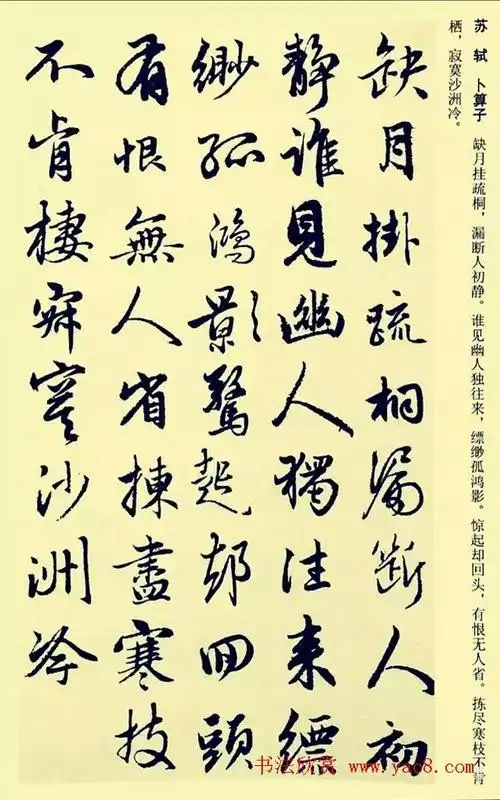 苏轼 卜算子 缺月挂疏桐，漏断人初静。谁见幽人独往来，缥缈孤鸿影。惊起却回头，有恨无人省。拣尽寒枝不肯
栖，寂寞沙洲冷。
缺月掛疏桐漏斷人初
静誰見幽人獨往来縹
緲孤鴻影驚起却回頭
有恨無人省揀盡寒枝
不肯棲寂寞沙洲冷
书法欣赏 www.yac8.com